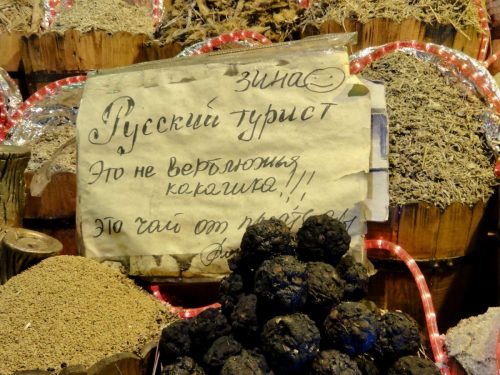 Зина
Русский турист
Это не верблюжья
какашка!!!
Это чай от